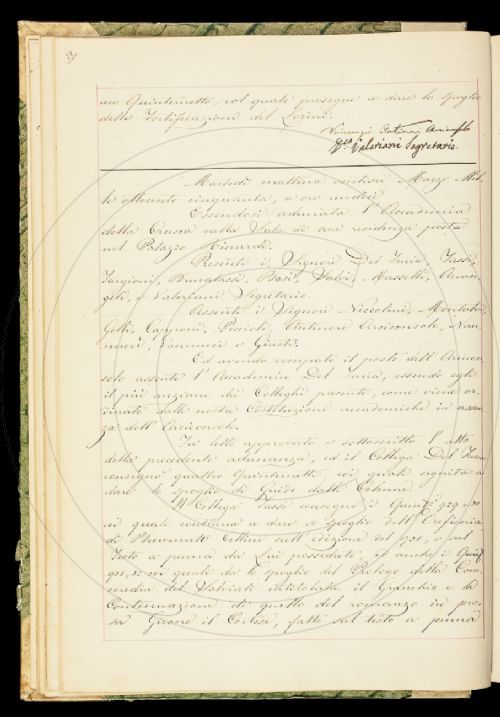 un Quinternetto, col quale prosegue a dare lo spoglio
delle Fortificazioni del Lorini.
Vincenzio Antinori Arciconsolo
Valeriani Segretario.
Martedì mattina ventisei Marzo Mil-
le ottocento cinquanta, a ore undici
Essendosi adunata l'Accademia
della Crusca nella Sala di sua residenza posta
nel Palazzo Riccardi.
Presenti i Signori Del Furia, Tassi,
Targioni, Brucalassi, Basi, Salvi, Masselli, Arcan-
geli, e Valeriani Segretario.
Assenti i Signori Niccolini, Montalvi,
Gelli, Capponi, Piccioli, Antinori Arciconsolo, Nan-
nucci, Vannucci e Giusti.
Ed avendo occupato il posto dell'Arcicon-
solo assente l'Accademico Del Furia, essendo egli
il più anziano dei Colleghi presenti, come viene or-
dinato dalle nostre Costituzioni accademiche in assen-
za dell'Arciconsolo.
Fu letto approvato e sottoscritto l'atto
della precedente adunanza, ed il Collega Del Furia
consegnò quattro Quinternetti, coi quali seguita a
dare lo spoglio di Guido dalle Colonne.
Il Collega Tassi consegnò i Quint. 929 e 30
coi quali continua a dare lo spoglio dell'Oreficeria
di Benvenuto Cellini sull'edizione del 731, e sul
Testo a penna da Lui posseduto, e anche i Quint.
931, 32 coi quali dà lo spoglio del Prologo della Com-
media del Salviati intitolata il Granchio e la
Continuazione di quello del romanzo in pro-
sa Girone il Cortese, fatto sul testo a penna